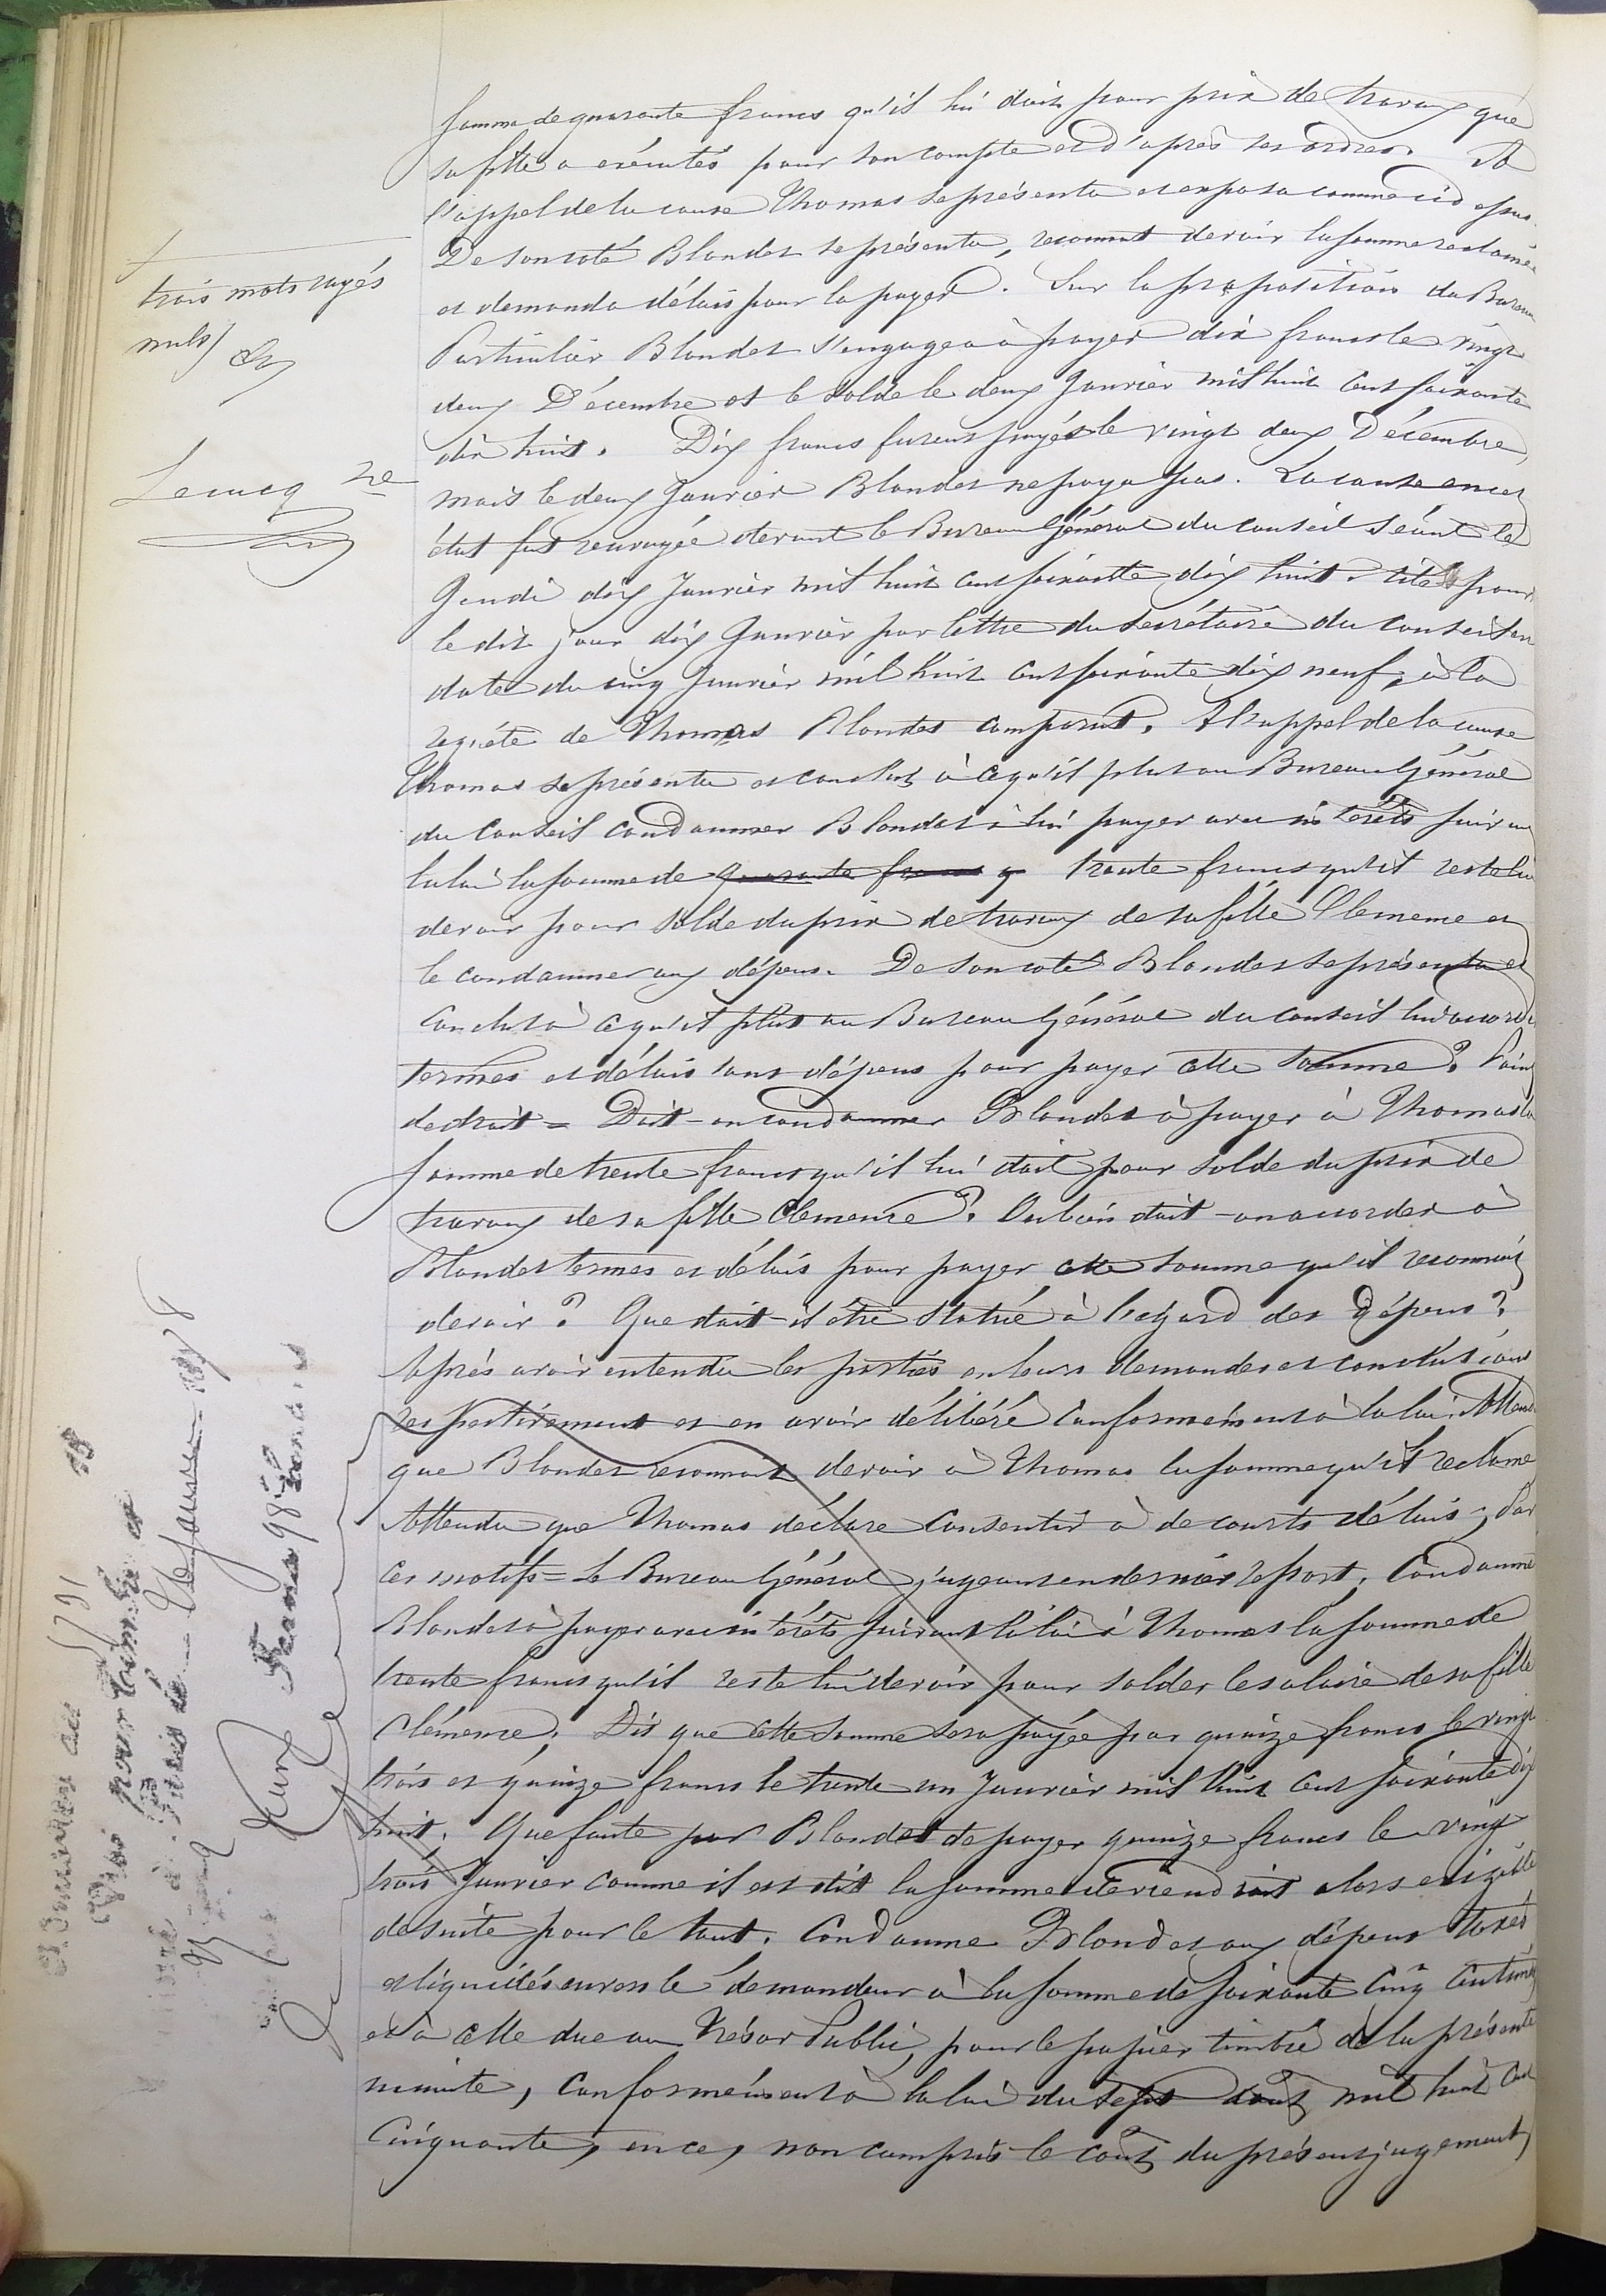 somme de quarante francs qu'il lui doit pour prix de travaux que
sa fille a exécutés pour son compte et d'après ses ordres. A
l'appel de la cause Thomas se présenta et exposa comme ci dessus.
De son coté Blondet se présenta, reconnut devoir la somme réclamée
et demanda délais pour la payer. Sur la proposition du Bureau
Particulier Blondet s'engagea à payer dix francs le vingt
deux Décembre et le solde le deux Janvier mil huit cent soixante
dix huit. Dix francs furent payés le vingt deux Décembre,
mais le deux Janvier Blondet ne paya pas. La cause en cet
état fut renvoyée devant le Bureau Général du Conseil séant le
Jeudi dix Janvier mil huit cent soixante dix huit. Cité pour
le dit jour dix Janvier par lettre du secrétaire du Conseil en
date du cinq Janvier mil huit cent soixante dix neuf, à la
requête de Thomas Blondet comparut. A l'appel de la cause
Thomas se présenta et conclut à ce qu'il plut au Bureau Général
du Conseil condamner Blondet à lui payer avec intérêts suivant
la loi la somme de quarante francs q trente francs qu'il reste lui
devoir pour solde du prix de travaux de sa fille Clemence et
le condamner aux dépens. De son coté Blondet se présenta et
conclut à ce qu'il plut au Bureau Général du Conseil lui accorder
termes et délais sans dépens pour payer cette somme. Point
de droit = Doit-on condamner Blondet à payer à Thomas la
somme de trente francs qu'il lui doit pour solde du prix de
travaux de sa fille Clemence? Ou bien doit-on accorder à
Blondet termes et délais pour payer cette somme qu'il reconnait
devoir? Que doit-il être statué à l'égard des dépens?
Après avoir entendu les parties en leurs demandes et conclusions
respectivement et en avoir délibéré conformément à la loi. Attendu
que Blondet reconnait devoir à Thomas la somme qu'il réclame
Attendu que Thomas déclare consentir à de courts délais; Par
ces motifs = Le Bureau Général jugeant en dernier ressort, Condamne
Blondet à payer avec intérêts suivant la loi à Thomas la somme de
trente francs qu'il reste lui devoir pour solder le salaire de sa fille
Clémence. Dit que cette somme sera payée par quinze francs le vingt
trois et quinze francs le trente un Janvier mil huit cent soixante dix
huit. Que faute par Blondet de payer quinze francs le vingt
trois Janvier comme il est dit la somme deviendrait alors exigible
de suite pour le tout. Condamne Blondet aux dépens taxés
et liquidés envers le demandeur à la somme de soixante cinq centimes
et à celle due au Trésor Public, pour le papier timbré de la présente
minute, conformément à la loi du sept août mil huit cent
cinquante, en ce, non compris le coût du présent jugement,
trois mots rayés
nuls
Lecucq
Visé pour timbre et